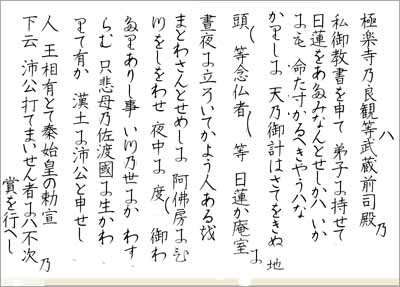 極楽寺乃良観等ハ武蔵前司殿乃
私御教書を申て 弟子に持せて
日蓮をあたみなんとせしかハ いか
にも 命たすかるへきやうハな
かりしに 天乃御計はさてをきぬ 地
頭〱等念仏者〱等 日蓮か庵室に
晝夜に立そいてかよう人ある越
まとわさんとせめしに 阿佛房にひ
つをしをわせ 夜中に 度〱 御わ
たりありし事 いつ乃世にか わす
らむ 只悲母乃佐渡國に生かわ
りて有か 漢土に沛公と申せし
人 王相有とて秦始皇の勅宣乃
下云 沛公打てまいせん者にハ不次
賞を行へし